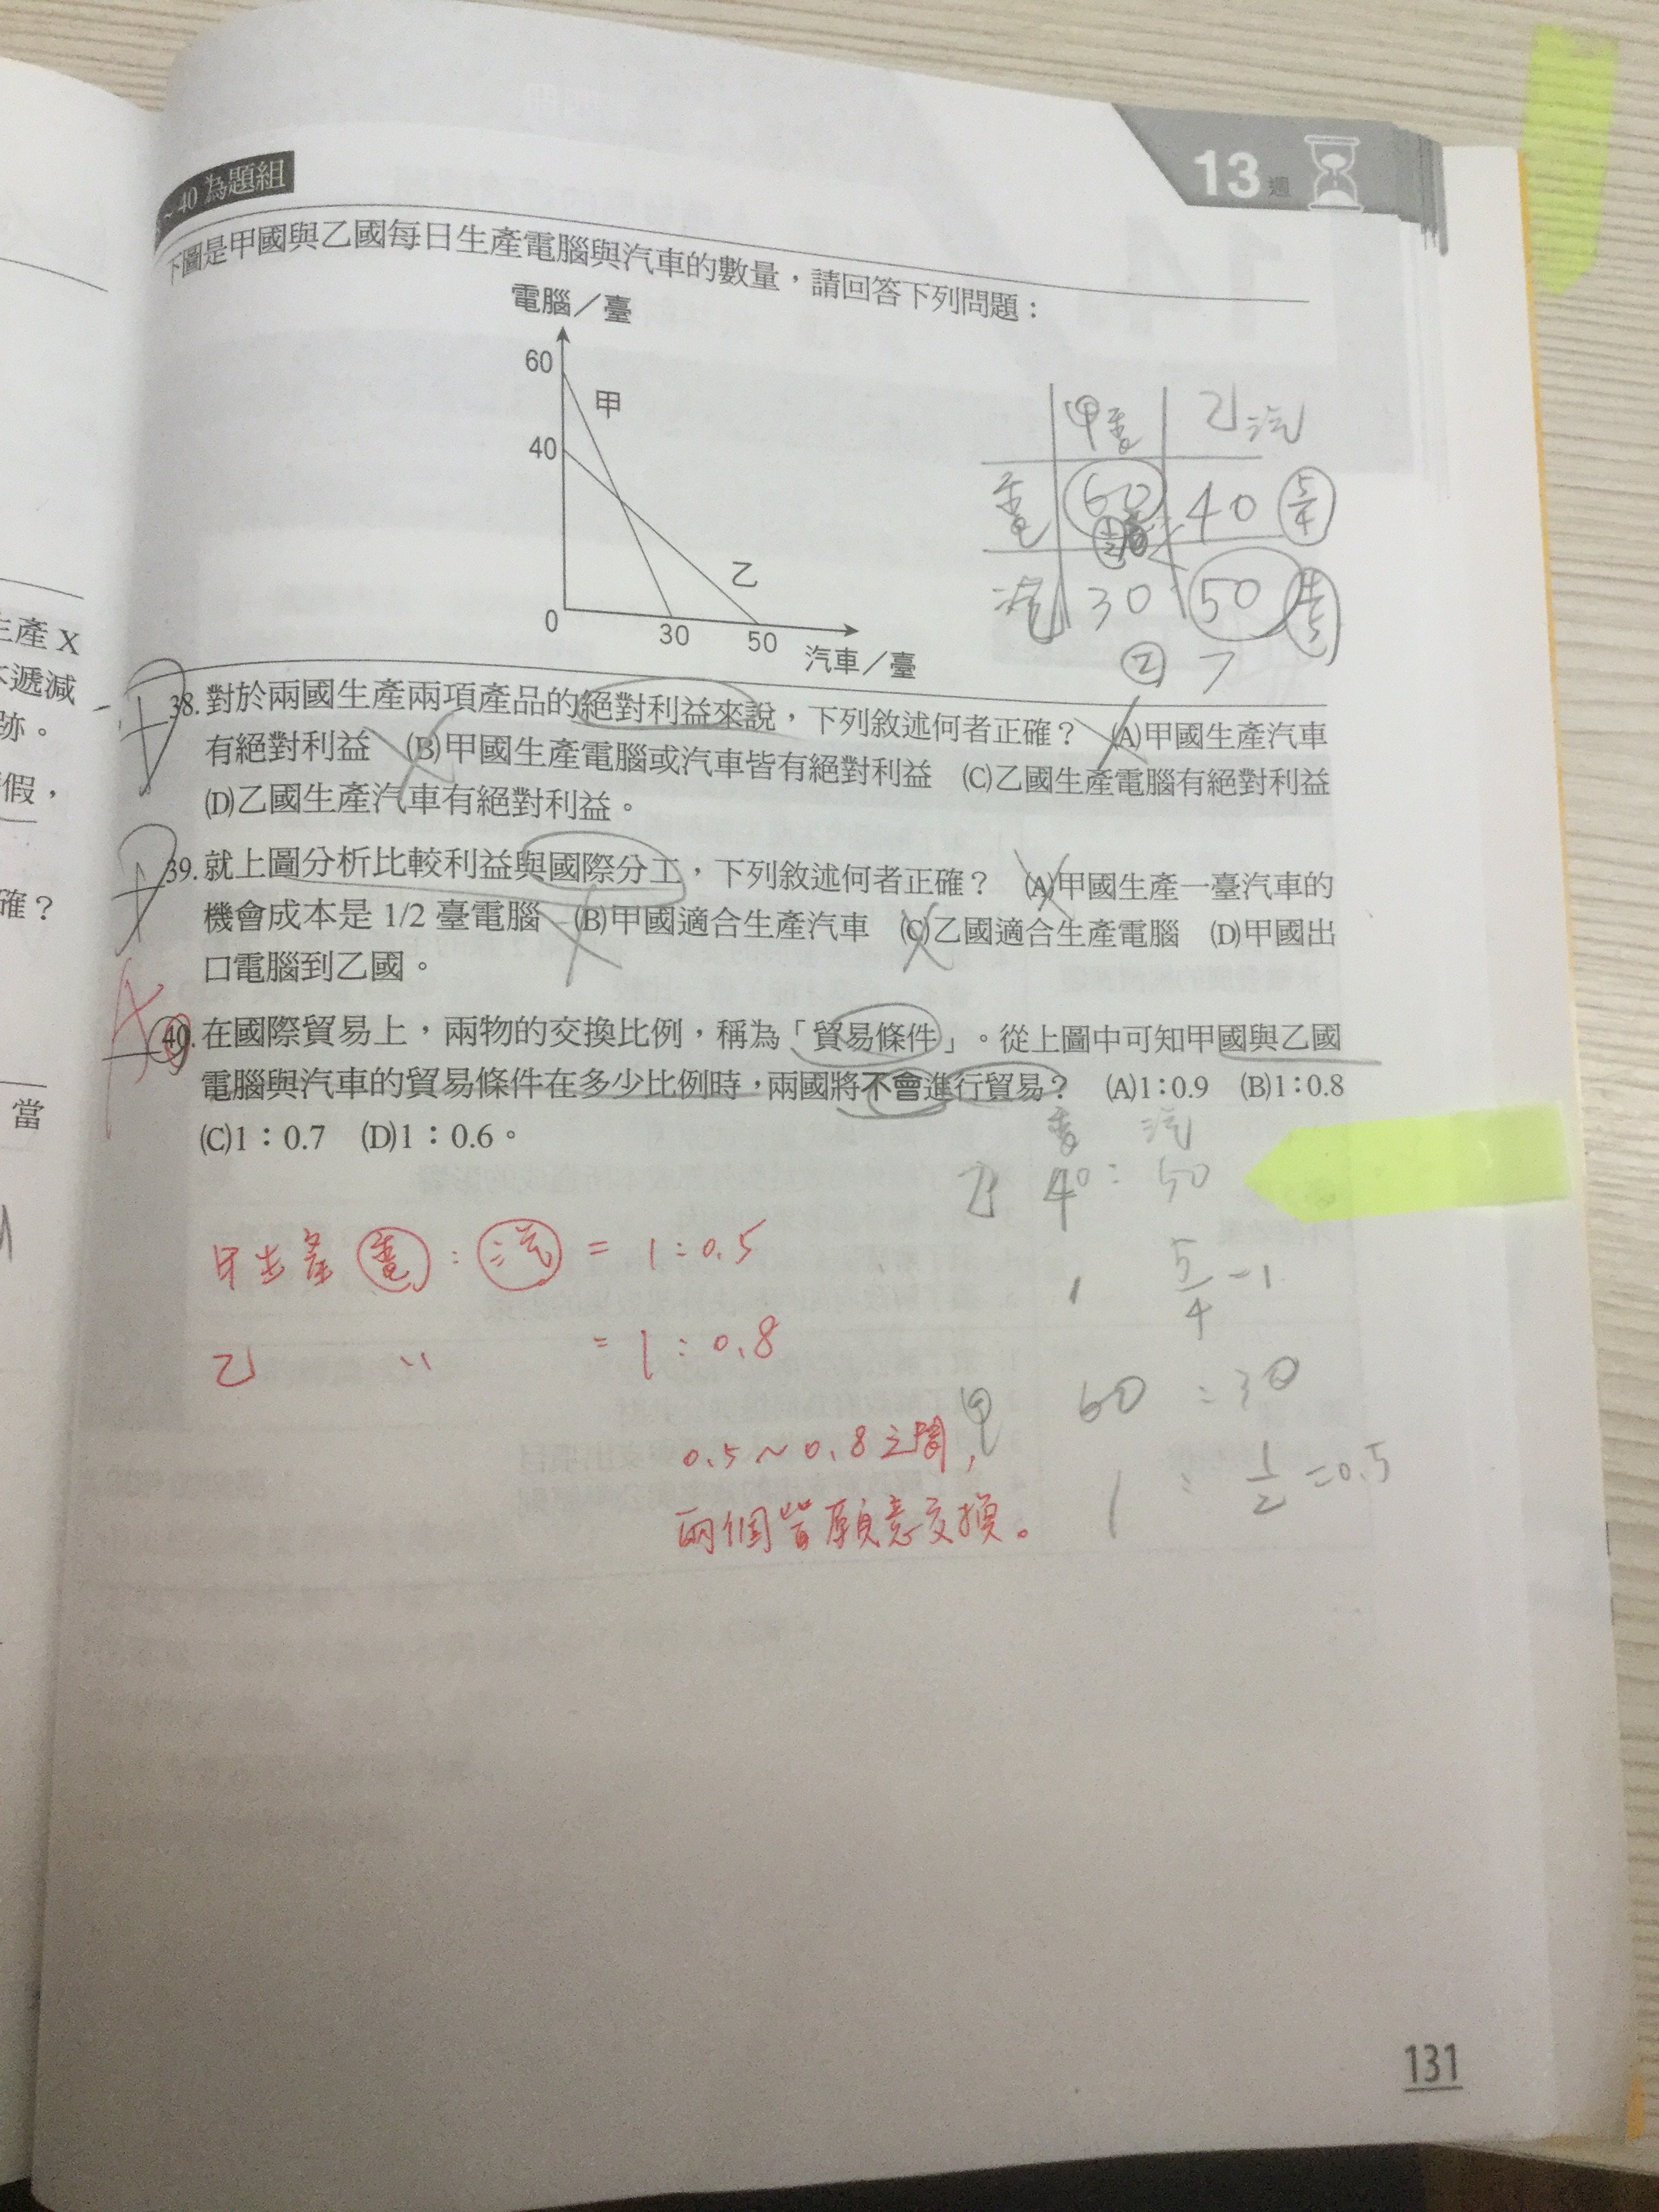 13 週
~ 40 為題組
下圖是甲國與乙國每日生產電腦與汽車的數量，請回答下列問題：
電腦／臺
60
甲
40
乙
0
30
50
汽車／臺
甲電 乙汽
電 60 40 5/4
汽 30 50 4/5
38. 對於兩國生產兩項產品的絕對利益來說，下列敘述何者正確？ (A)甲國生產汽車
有絕對利益 (B)甲國生產電腦或汽車皆有絕對利益 (C)乙國生產電腦有絕對利益
(D)乙國生產汽車有絕對利益。
D
39. 就上圖分析比較利益與國際分工，下列敘述何者正確？ (A)甲國生產一臺汽車的
機會成本是 1/2 臺電腦 (B)甲國適合生產汽車 (C)乙國適合生產電腦 (D)甲國出
口電腦到乙國。
D
A
40. 在國際貿易上，兩物的交換比例，稱為「貿易條件」。從上圖中可知甲國與乙國
電腦與汽車的貿易條件在多少比例時，兩國將不會進行貿易？ (A)1：0.9 (B)1：0.8
(C)1：0.7 (D)1：0.6。
電 汽
乙 40 : 50
1 5/4 -1
甲 60 : 30
1 : 1/2 =0.5
甲生產 電 : 汽 = 1 : 0.5
乙 〃 = 1 : 0.8
0.5～0.8之間，
兩個皆願意交換。
生產 X
遞減
跡。
假，
確？
當
131